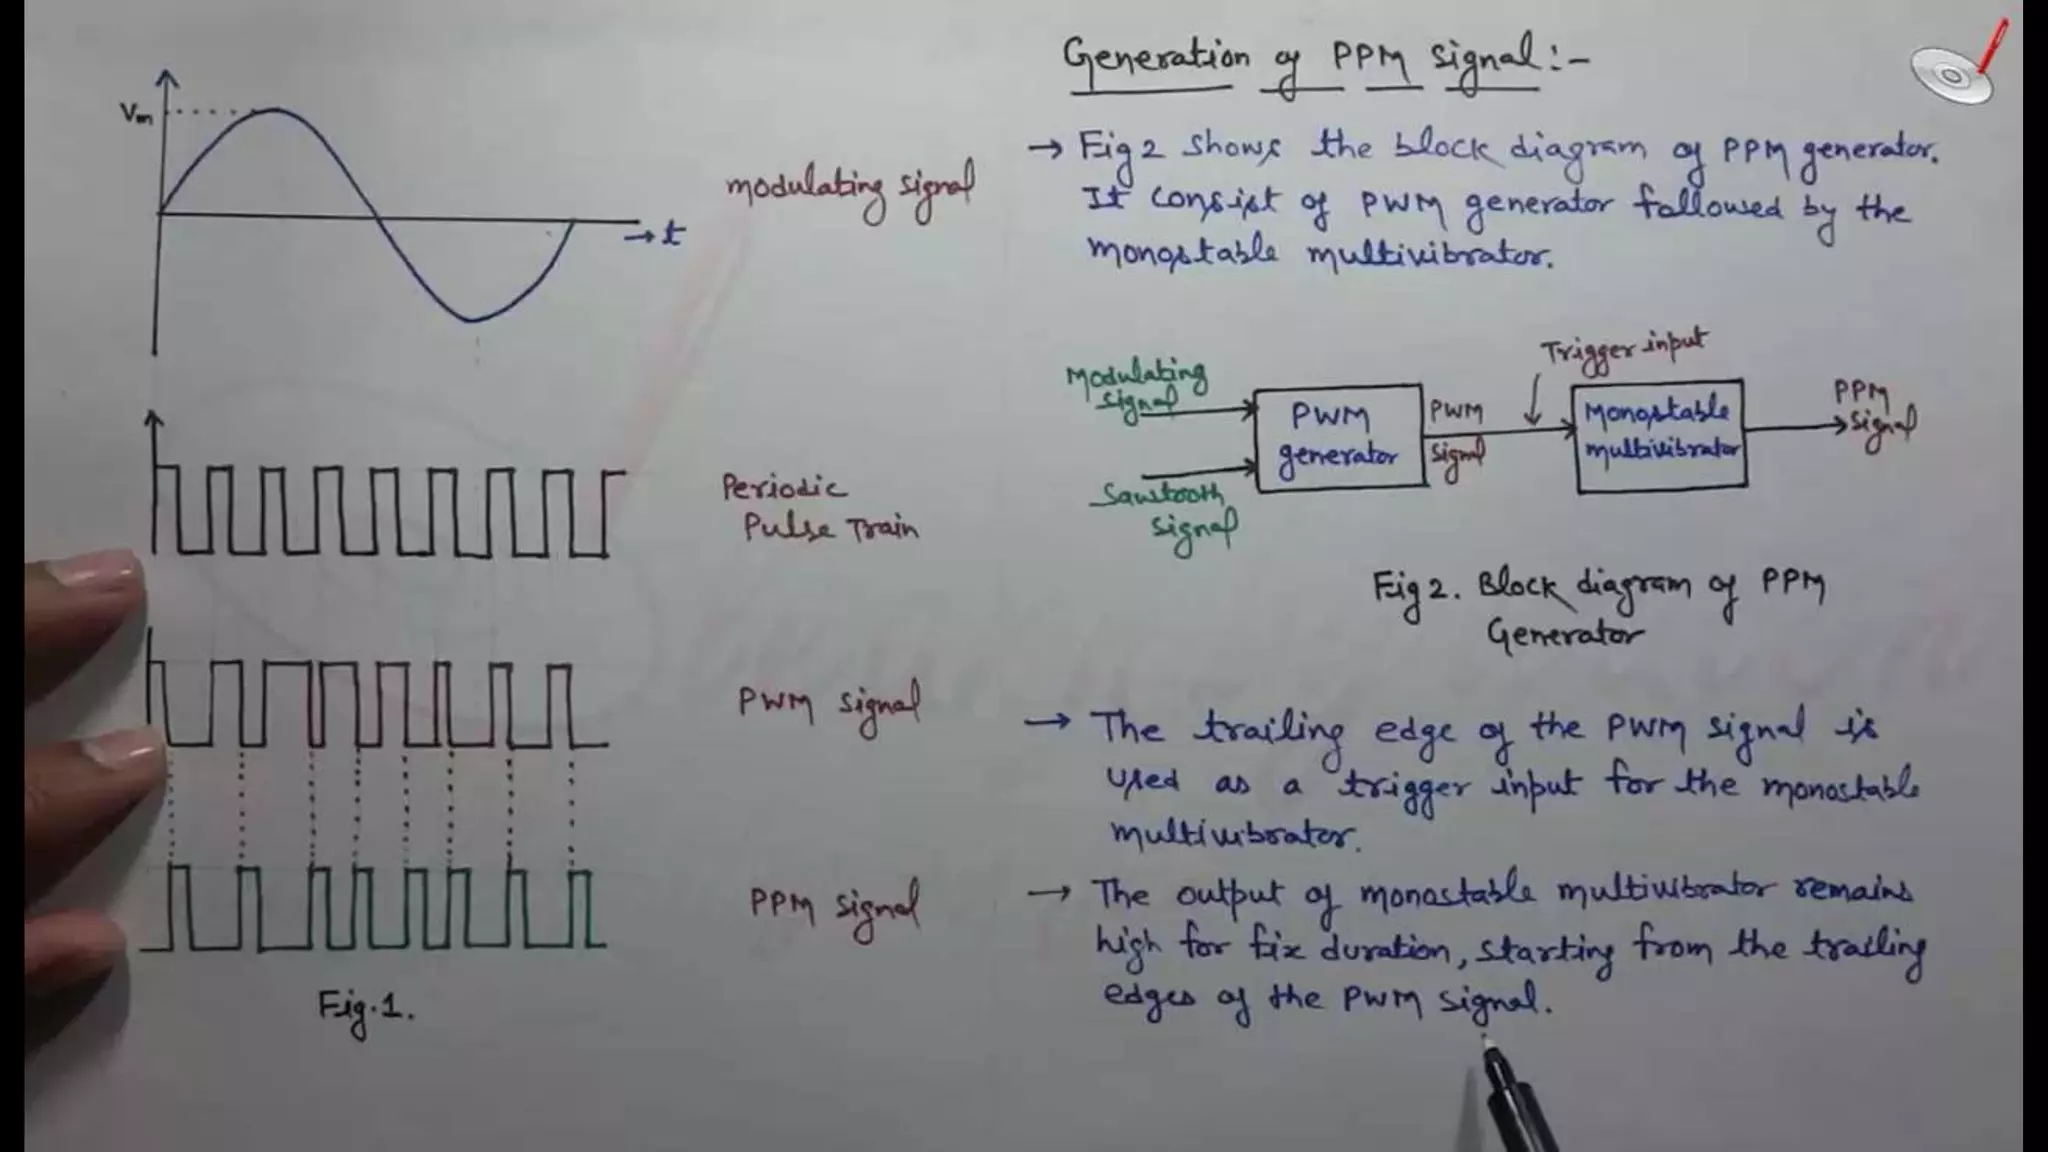 Vm
→ t
modulating signal
Periodic
Pulse Train
PWM signal
PPM signal
Fig.1.
Generation of PPM signal:-
→ Fig 2 shows the block diagram of PPM generator.
It consist of PWM generator followed by the
monostable multivibrator.
Modulating
signal
Sawtooth
signal
PWM
generator
PWM
signal
Trigger input
Monostable
multivibrator
PPM
signal
Fig 2. Block diagram of PPM
Generator
→ The trailing edge of the PWM signal is
used as a trigger input for the monostable
multivibrator.
→ The output of monostable multivibrator remains
high for fix duration, starting from the trailing
edges of the PWM signal.